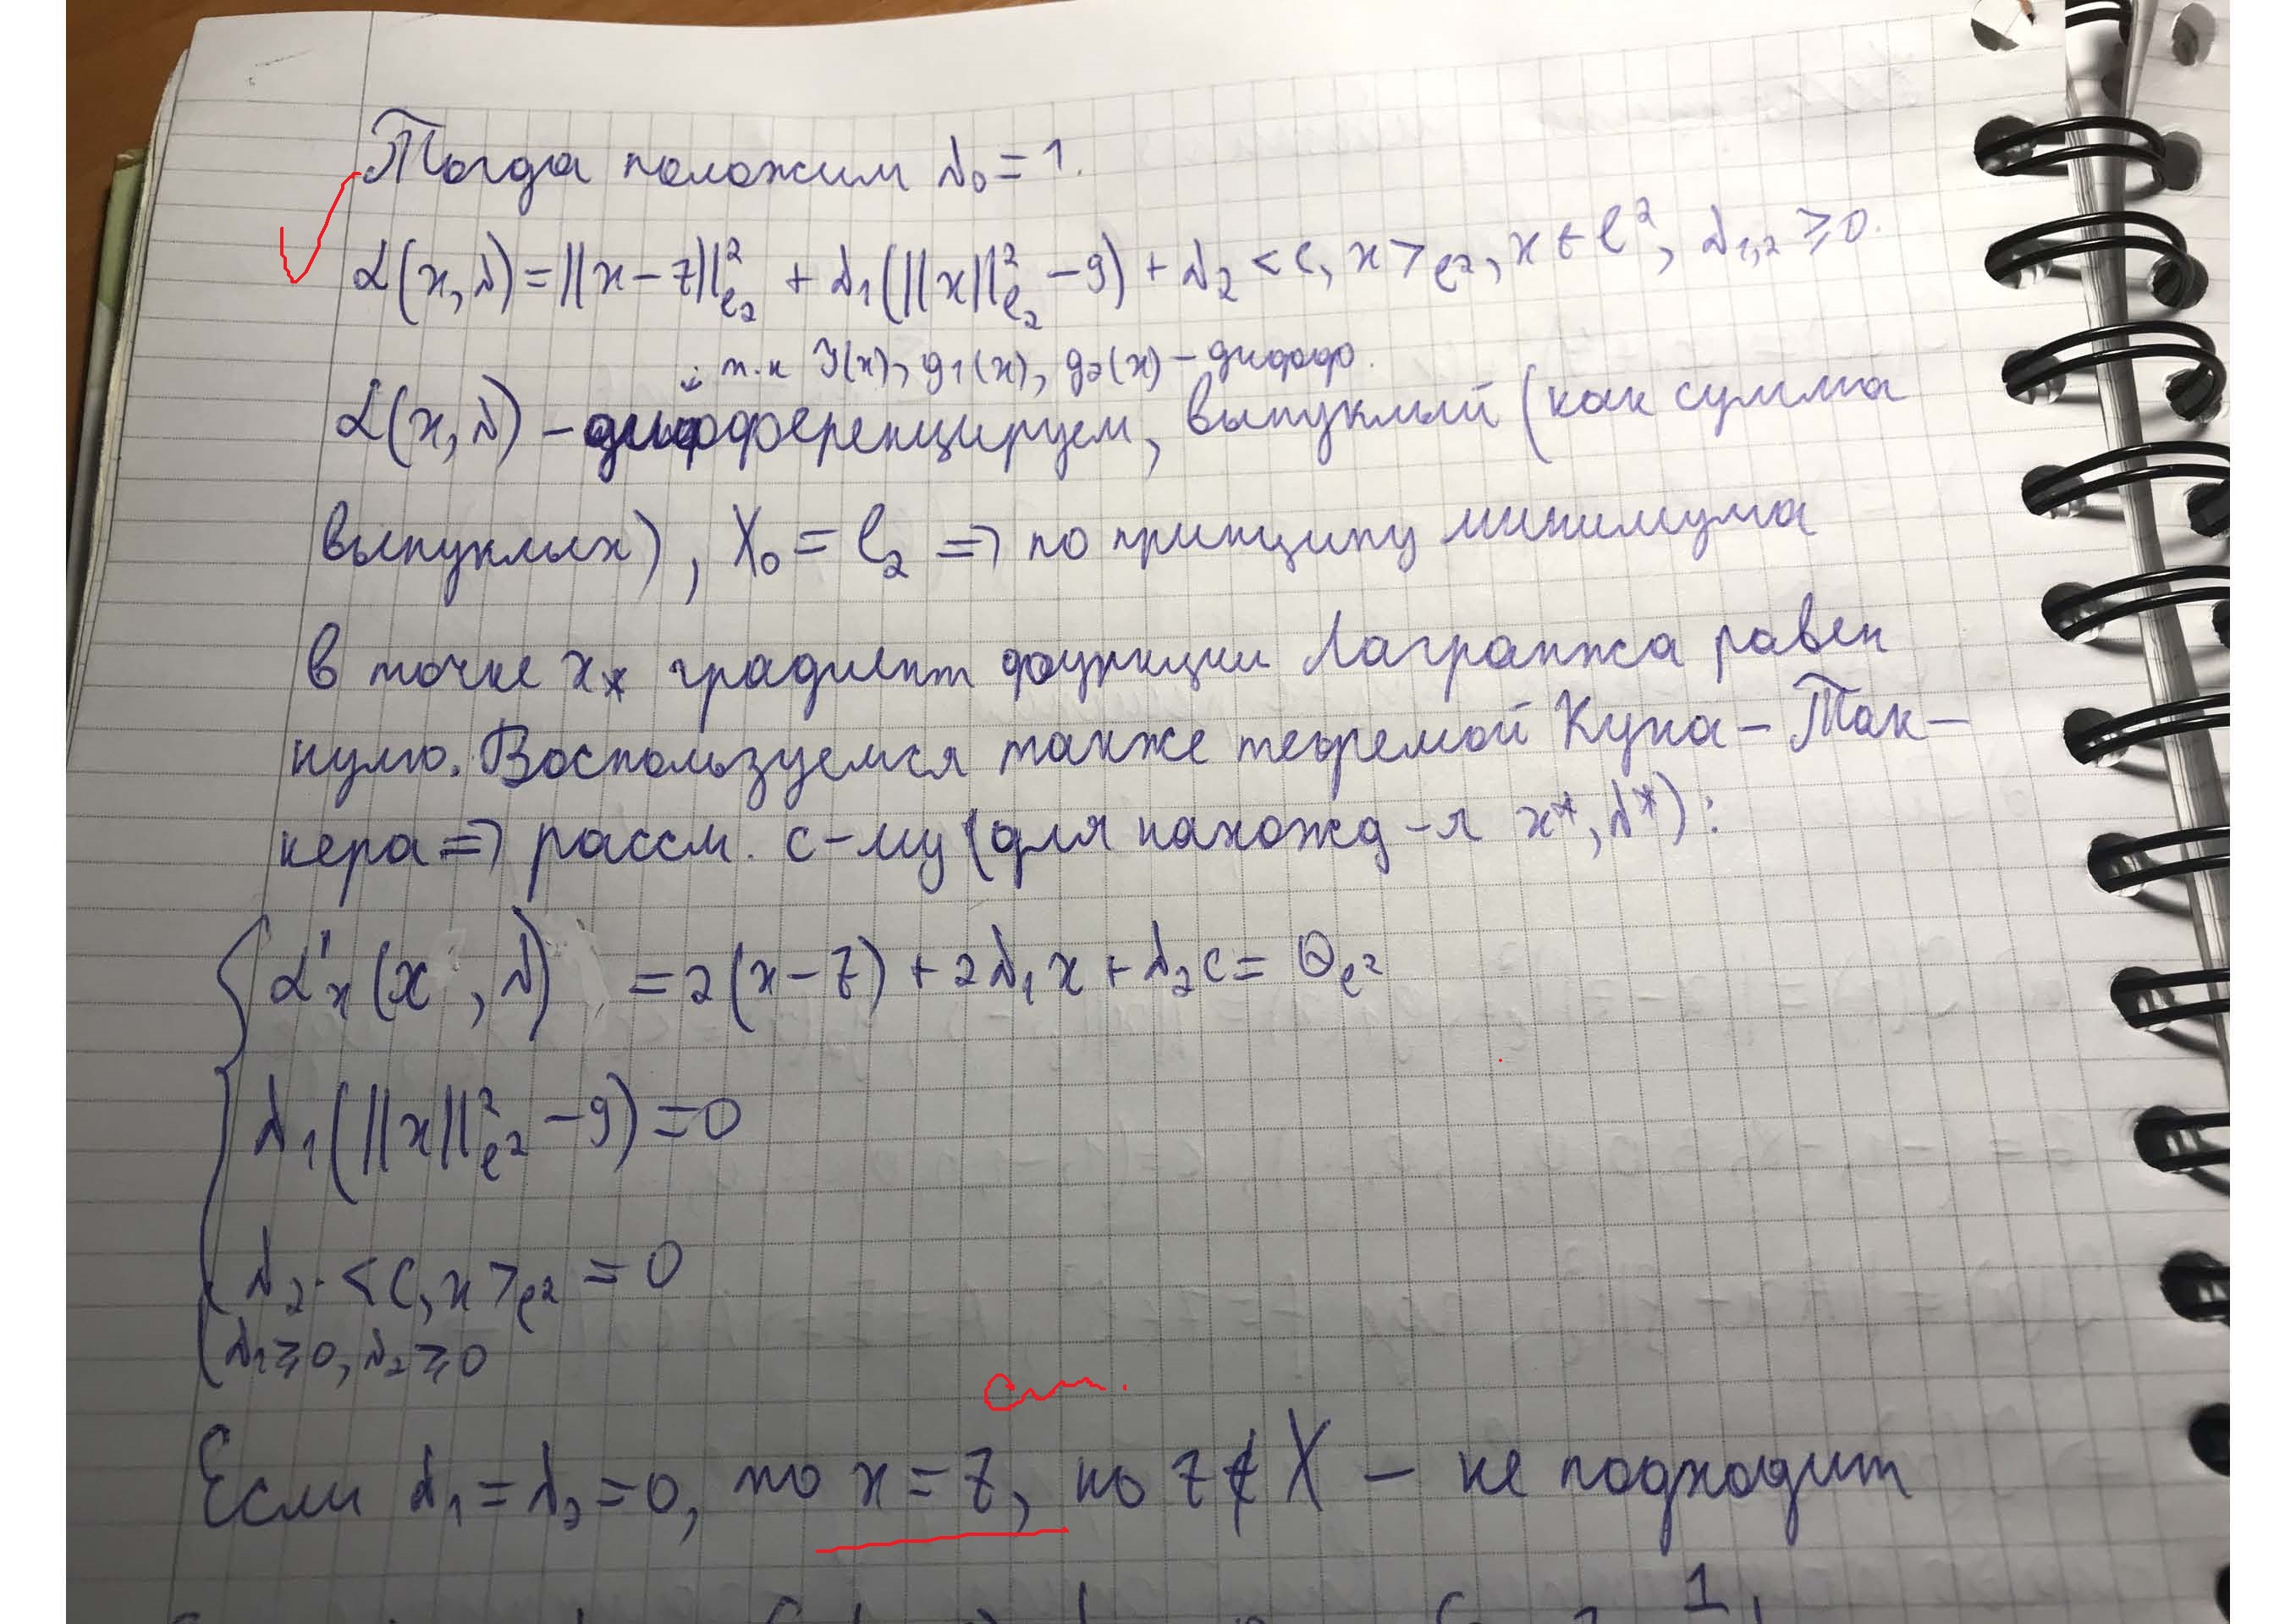 Тогда положим λ₀ = 1.
L(x, λ) = ||x − z||²_{ℓ₂} + λ₁(||x||²_{ℓ₂} − 9) + λ₂ <c, x>_{ℓ²}, x ∈ ℓ², λ₁,₂ ≥ 0.
т.к J(x), g₁(x), g₂(x) – дифф.
L(x, λ) – дифференцируем, выпуклый (как сумма
выпуклых), X₀ = ℓ₂ ⇒ по принципу минимума
в точке x* градиент функции Лагранжа равен
нулю. Воспользуемся также теоремой Куна – Так–
кера ⇒ рассм. с-му (для нахожд-я x*, λ*):
L'ₓ(x, λ) = 2(x − z) + 2λ₁x + λ₂c = Θ_{ℓ²}
λ₁(||x||²_{ℓ²} − 9) = 0
λ₂ · <c, x>_{ℓ²} = 0
λ₁ ≥ 0, λ₂ ≥ 0
Если λ₁ = λ₂ = 0, то x = z, но z ∉ X – не подходит